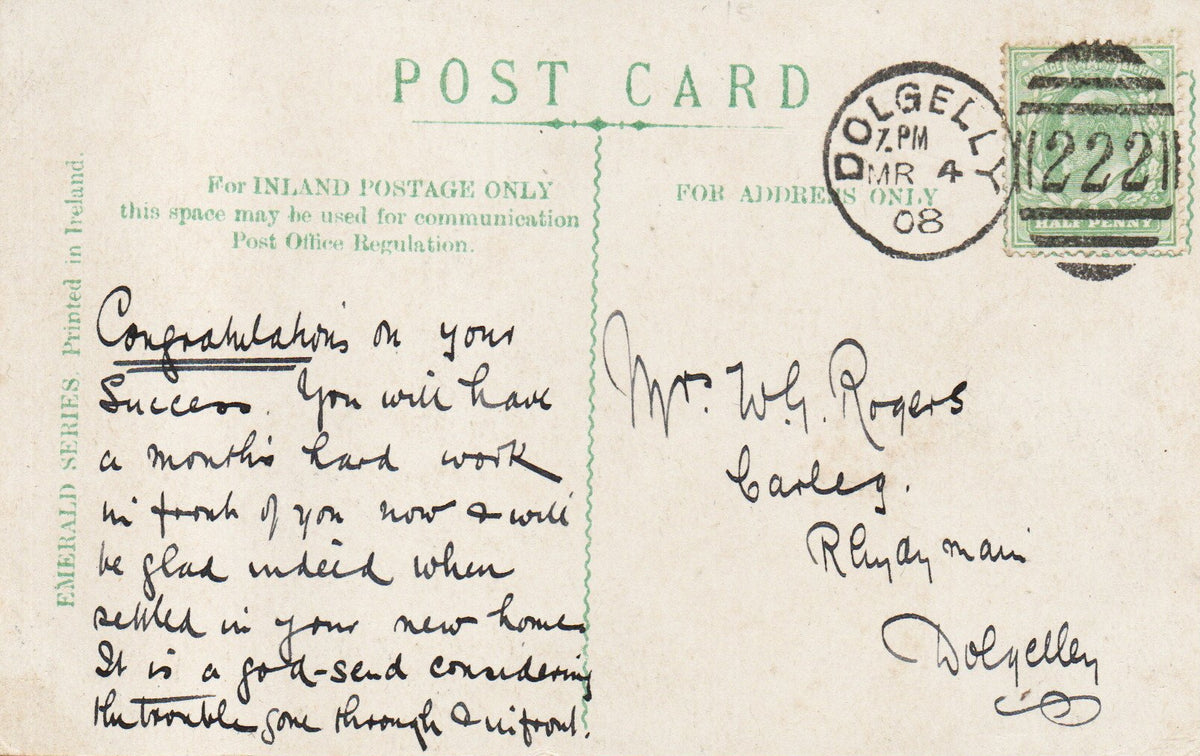 POST CARD
EMERALD SERIES. Printed in Ireland.
For INLAND POSTAGE ONLY
this space may be used for communication
Post Office Regulation.
FOR ADDRESS ONLY
DOLGELLY
7. PM
MR 4
08
222
HALF PENNY
Congratulations on your
Success. You will have
a month's hard work
in front of you now & will
be glad indeed when
settled in your new home.
It is a god-send considering
the trouble gone through & in front.
Mrs. W. G. Rogers
Carleg.
Rhydymain
Dolgelley